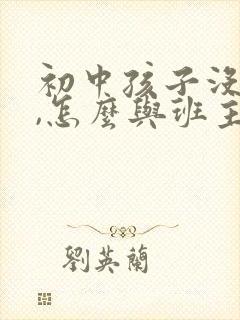 初中孩子沒
,怎麼與班主
劉英蘭